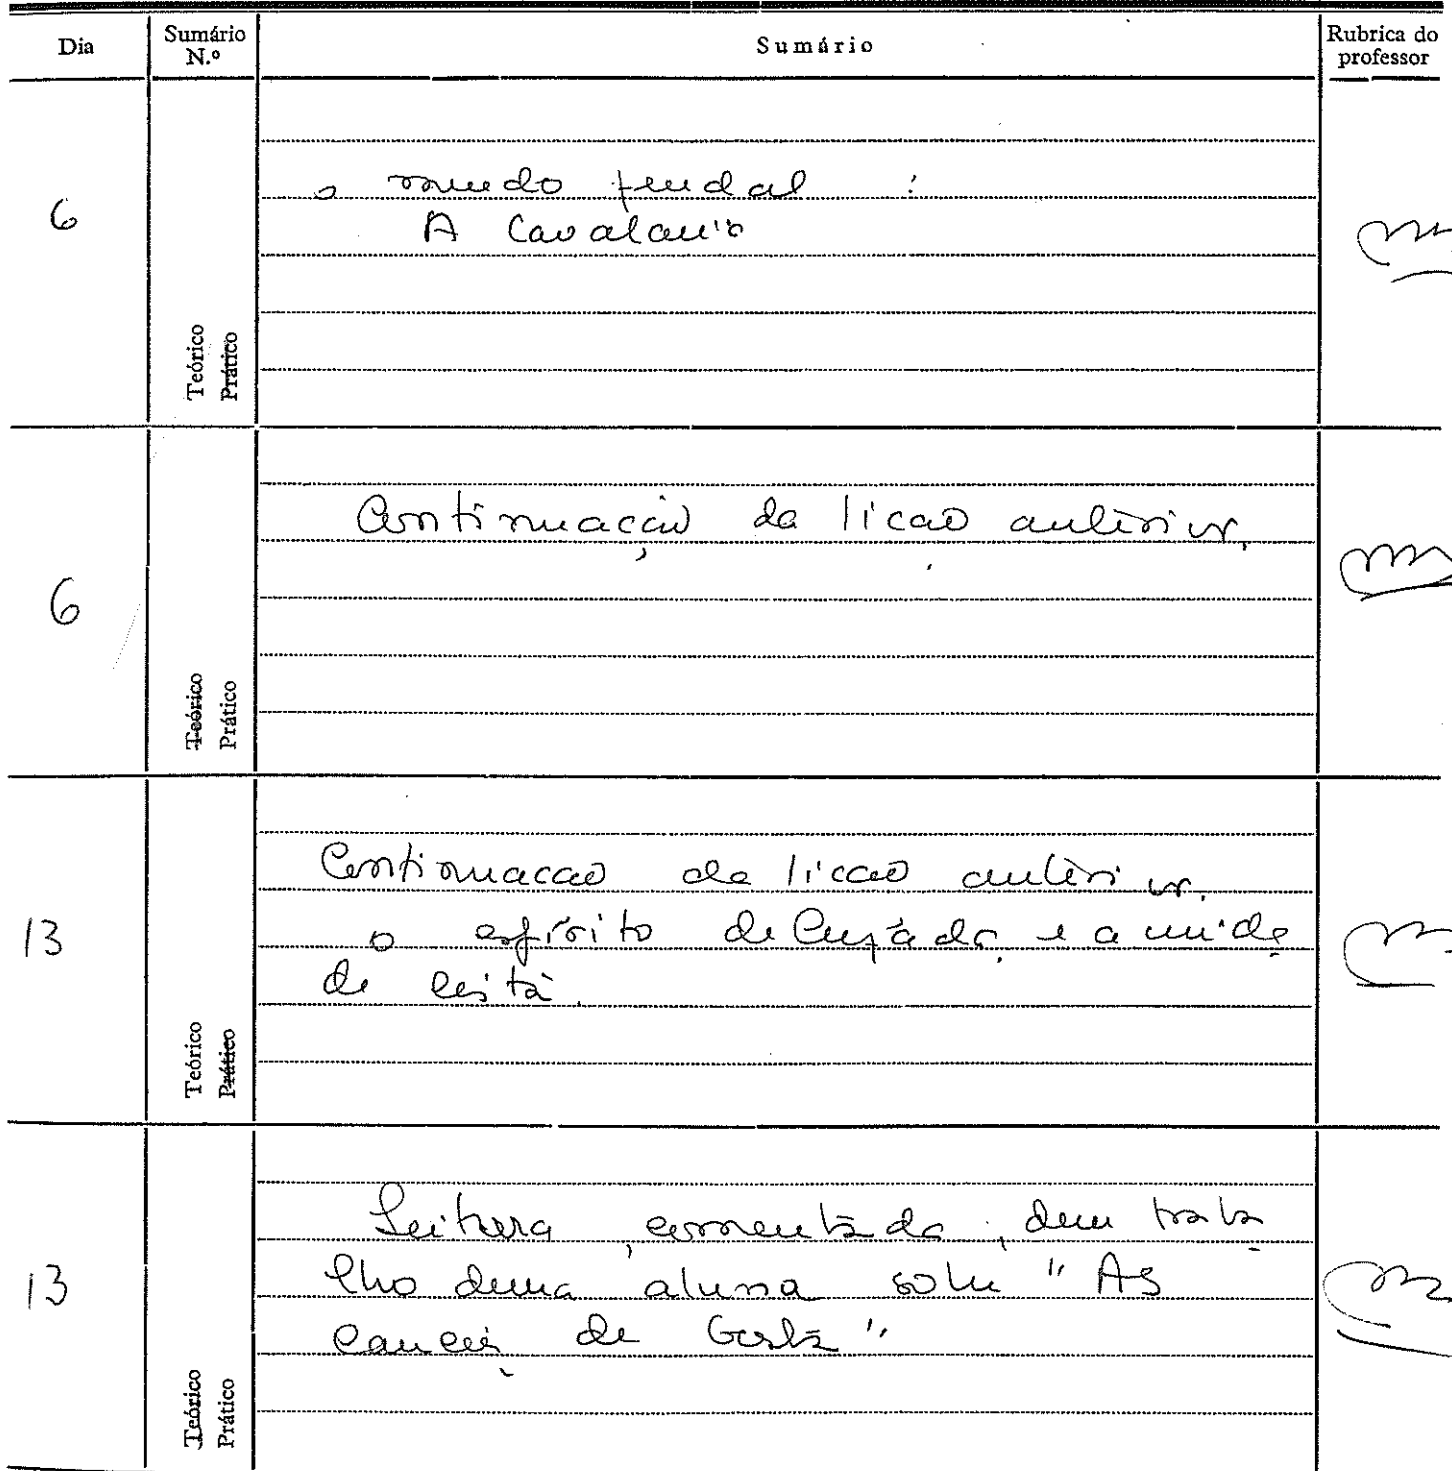 Dia Sumário N.º Sumário Rubrica do professor
6
o mundo feudal :
A Cavalaria
Teórico
Prático
6
Continuação da lição anterior.
Teórico
Prático
13
Continuação da lição anterior.
o espírito de Cruzada e a unida
de cristã.
Teórico
Prático
13
Leitura, comentada, dum traba
lho duma aluna sobre "As
Canções de Gesta"
Teórico
Prático